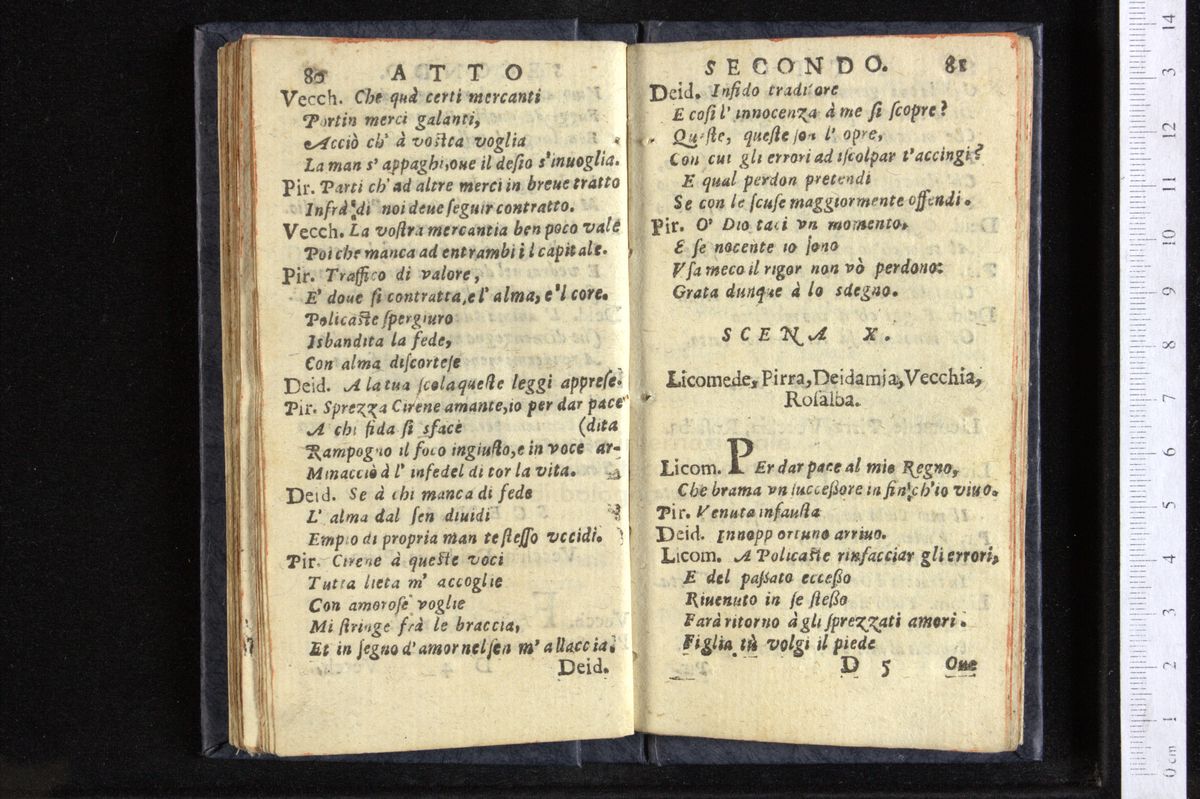 80 ATTO
Vecch. Che quà certi mercanti
Portin merci galanti,
Acciò ch' à vostra voglia
La man s' appaghi, oue il desio s'inuoglia.
Pir. Parti ch' ad altre merci in breue tratto
Infrà di noi deue seguir contratto.
Vecch. La vostra mercantia ben poco vale
Poi che manca ad entrambi il capitale.
Pir. Traffico di valore,
E' doue si contratta, e l' alma, e 'l core.
Policaste spergiuro
Isbandita la fede,
Con alma discortese
Deid. A la tua scola queste leggi apprese.
Pir. Sprezza Cirene amante, io per dar pace
A chi fida si sface (dita
Rampogno il foco ingiusto, e in voce ar-
Minacciò à l' infedel di tor la vita.
Deid. Se à chi manca di fede
L' alma dal sen diuidi
Empio di propria man te stesso vccidi.
Pir. Cirene à queste voci
Tutta lieta m' accoglie
Con amorose voglie
Mi stringe frà le braccia,
Et in segno d' amor nel sen m' allaccia.
Deid.
SECONDO. 81
Deid. Infido traditore
E cosi l' innocenza à me si scopre?
Queste, queste son l' opre,
Con cui gli errori ad iscolpar t'accingi?
E qual perdon pretendi
Se con le scuse maggiormente offendi.
Pir. O' Dio taci vn momento,
E se nocente io sono
Vsa meco il rigor non vò perdono:
Grata dunque à lo sdegno.
SCENA X.
Licomede, Pirra, Deidamia, Vecchia,
Rosalba.
Licom. PEr dar pace al mio Regno,
Che brama vn successore in fin ch'io viuo.
Pir. Venuta infausta
Deid. Innopportuno arriuo.
Licom. A Policaste rinfacciar gli errori,
E del passato eccesso
Riuenuto in se stesso
Farà ritorno à gli sprezzati amori.
Figlia tù volgi il piede
D 5 Oue
0 cm 1 2 3 4 5 6 7 8 9 10 11 12 13 14